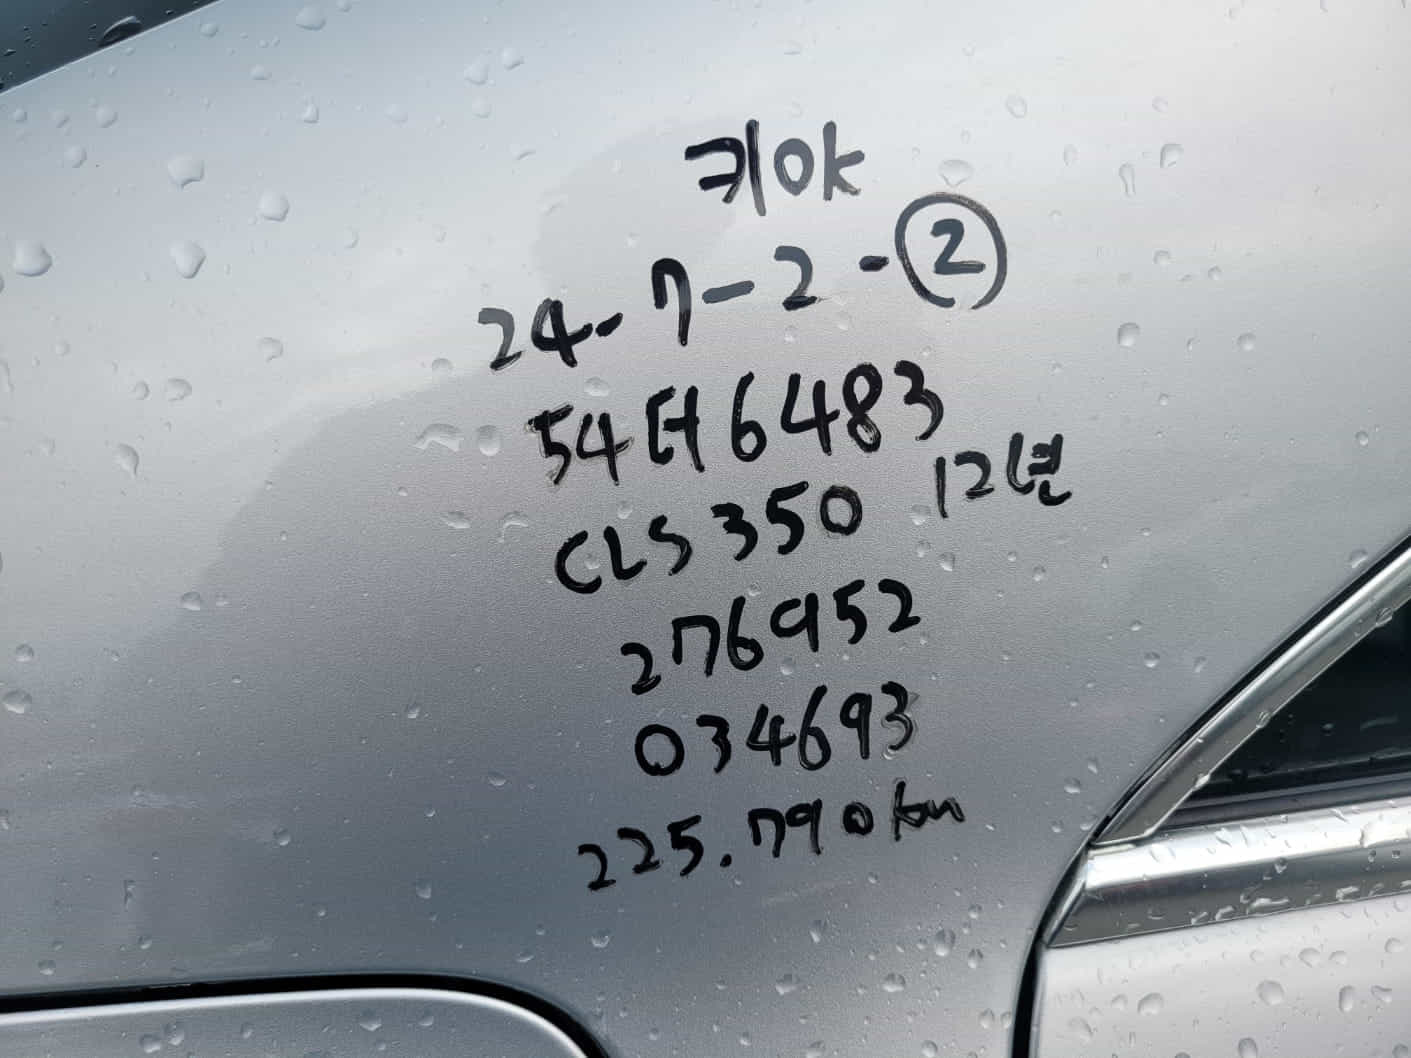 키OK
24-7-2-②
54더6483
CLS350 12년
276952
034693
225.790km